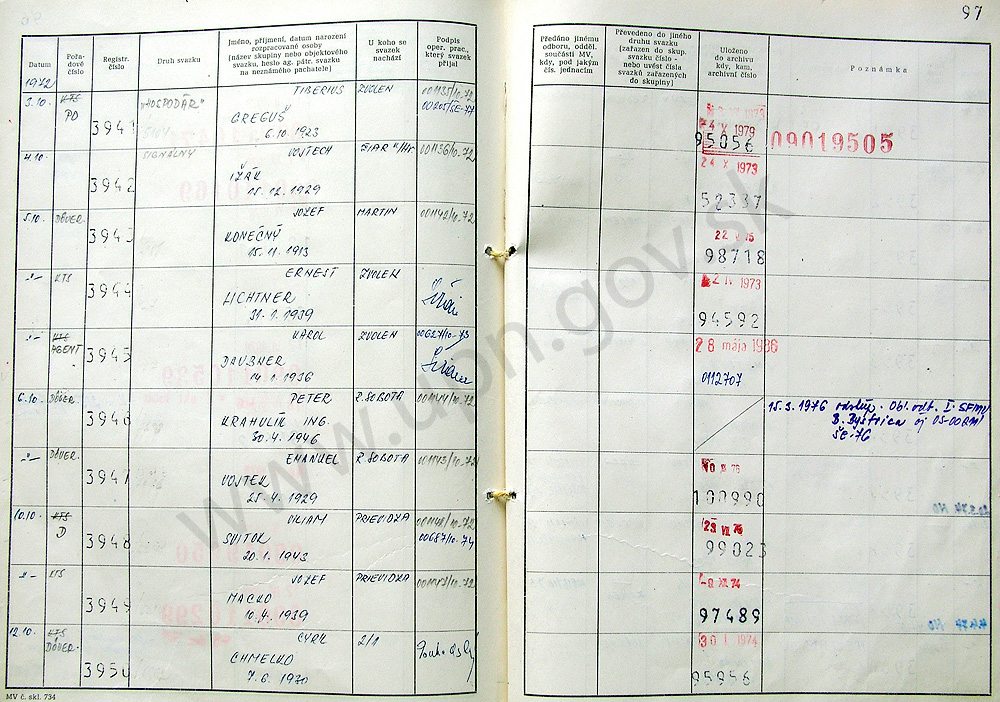 97
Datum
Pořa-
dové
číslo
Registr.
číslo
Druh svazku
Jméno, příjmení, datum narození
rozpracované osoby
(název skupiny nebo objektového
svazku, heslo ag. pátr. svazku
na neznámého pachatele)
U koho se
svazek
nachází
Podpis
oper. prac.,
který svazek
přijal
Předáno jinému
odboru, odděl.
součásti MV,
kdy, pod jakým
čís. jednacím
Převedeno do jiného
druhu svazku
(zařazen do skup.
svazku číslo -
nebo uvést čísla
svazků zařazených
do skupiny)
Uloženo
do archivu
kdy, kam,
archivní číslo
Poznámka
1972
3.10. KTS TIBERIUS ZVOLEN 001135/10-72
PO 3941 „HOSPODÁR" GREGUŠ
6.10.1923
24 X 1979
95056 09019505
4.10. SIGNÁLNY VOJTECH ŽIAR n/Hr 001136/10-72
24 X 1973
3942 IŽÁK
15.12.1929
52337
5.10. DÔVER. JOZEF MARTIN 001142/10-72
3943 KONEČNÝ
15.11.1913
98718
KTS ERNEST ZVOLEN
2 IV 1973
3944 LICHTNER
31.1.1939
94592
KTS KAROL ZVOLEN 00627/10-73
28 mája 1986
AGENT 3945 DAUBNER
14.1.1936
0112707
6.10. DÔVER. PETER R. SOBOTA 001144/10-72
3946 KRAHULÍK ING.
30.4.1946
15.3.1976 odstúp. Obl. odt. I. SFMV
B. Bystrica
ŠE-76
DÔVER. EMANUEL R. SOBOTA 001143/10-72
3947 VOJTEK
25.4.1929
100990
10.10. KTS VILIAM PRIEVIDZA 001148/10-72
D 3948 SVITOK 00687/10-74
20.1.1943
23 VII 75
99023
KTS JOZEF PRIEVIDZA
3949 MACKO
10.4.1939
97489
12.10. KTS CYRIL 2/1
DÔVER. 3950 CHMELKO
7.6.1930
30 I 1974
95956
MV č. skl. 734
www.upn.gov.sk